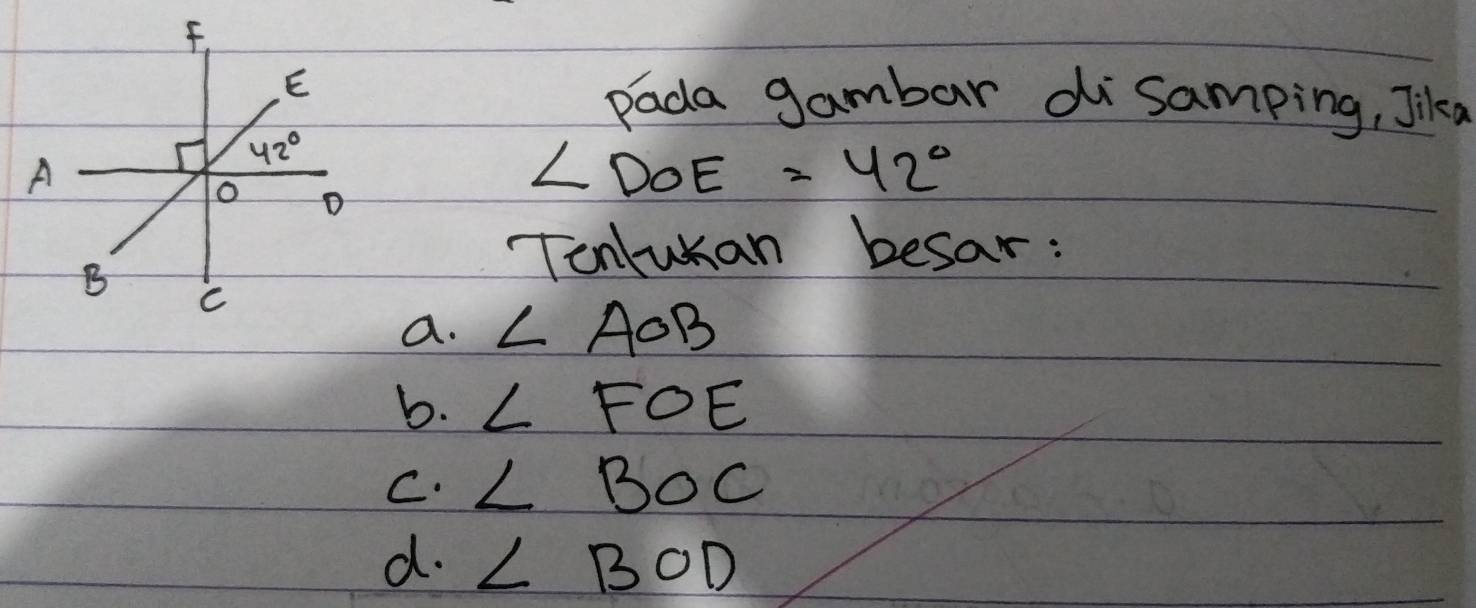 F
E
42°
A
O
D
B
C
pada gambar di samping, Jika
∠ DOE = 42°
Tentukan besar:
a. ∠ AOB
b. ∠ FOE
c. ∠ BOC
d. ∠ BOD